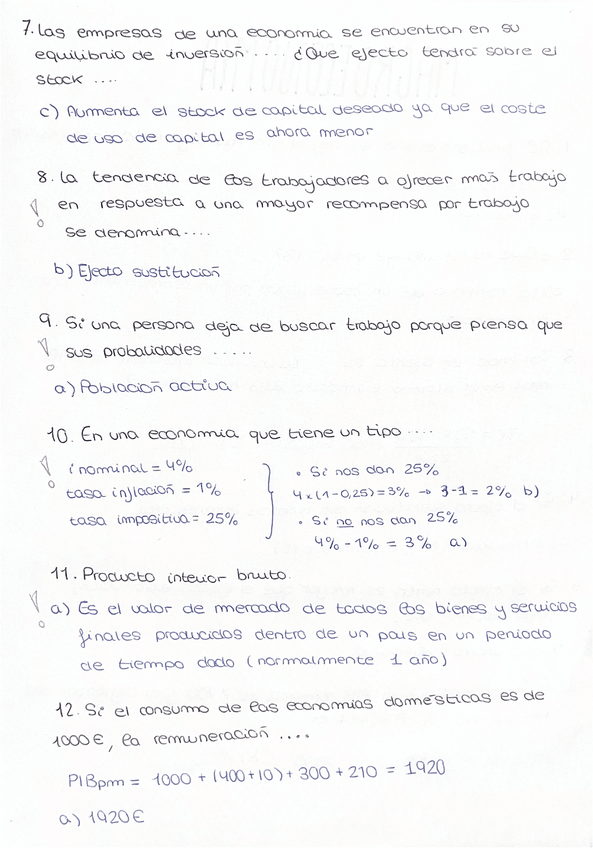 7. Las empresas de una economia se encuentran en su
equilibrio de inversión .... ¿Que efecto tendra sobre el
stock ....
c) Aumenta el stock de capital deseado ya que el coste
de uso de capital es ahora menor
8. La tendencia de los trabajadores a ofrecer mas trabajo
en respuesta a una mayor recompensa por trabajo
se denomina....
b) Efecto sustitución
9. Si una persona deja de buscar trabajo porque piensa que
sus probalidades .....
a) Población activa
10. En una economia que tiene un tipo ....
i nominal = 4%
tasa inflación = 1%
tasa impositiva = 25%
• Si nos dan 25%
4x(1-0,25)=3% → 3-1 = 2% b)
• Si no nos dan 25%
4% - 1% = 3% a)
11. Producto interior bruto.
a) Es el valor de mercado de todos los bienes y servicios
finales producidos dentro de un pais en un periodo
de tiempo dado (normalmente 1 año)
12. Si el consumo de las economias domésticas es de
1000€, la remuneración ....
PIBpm = 1000 + (400+10) + 300 + 210 = 1920
a) 1920€